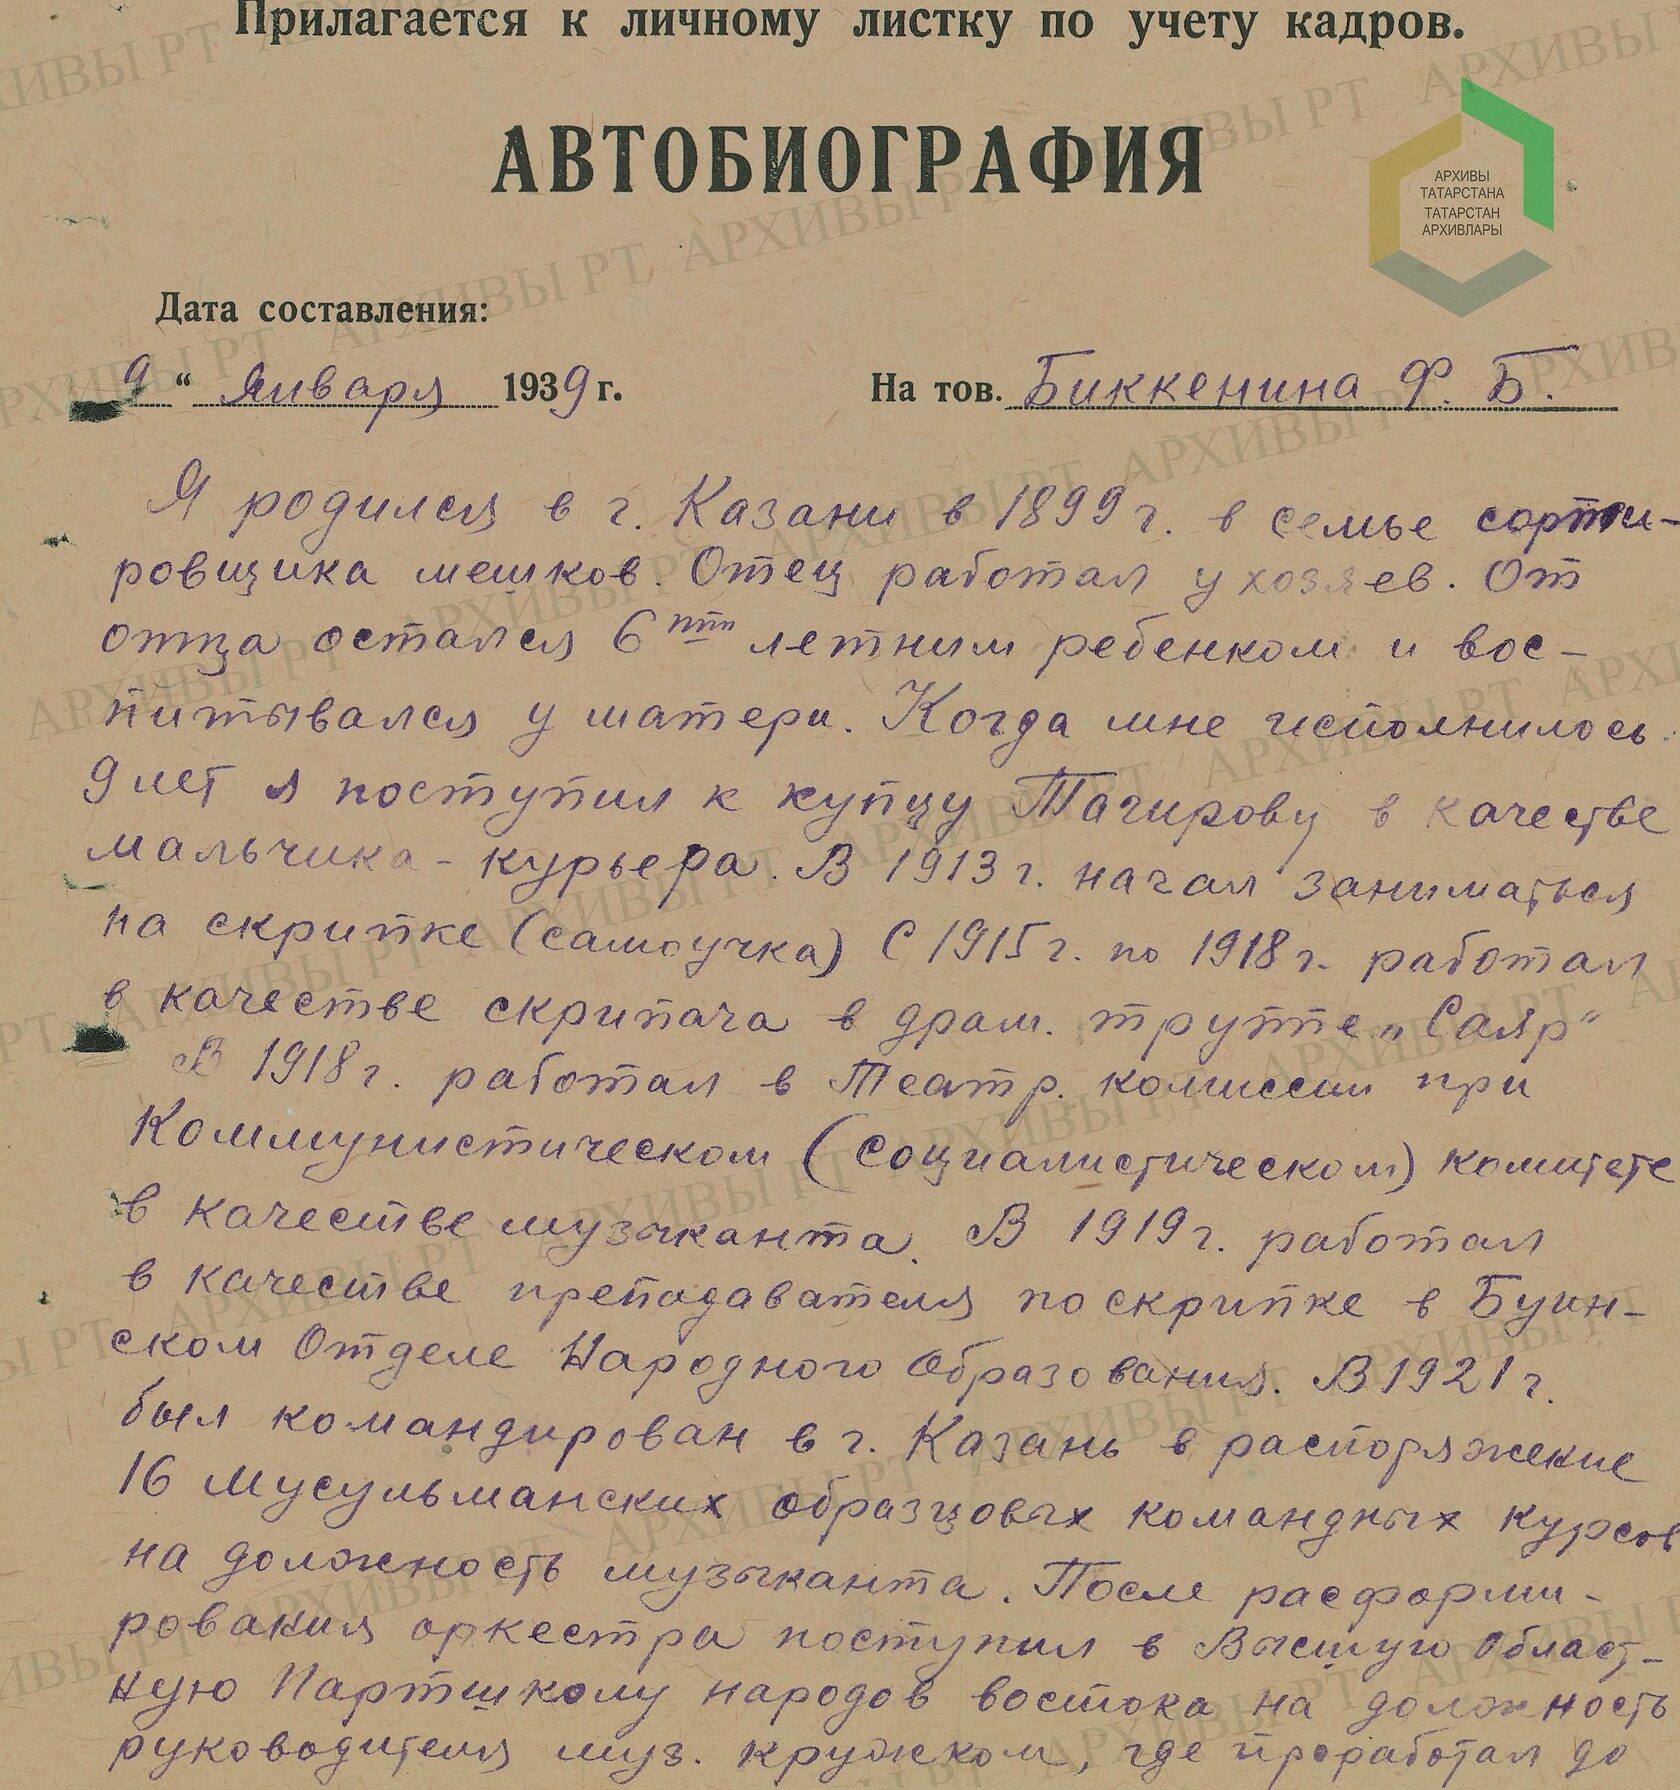 Прилагается к личному листку по учету кадров.
АВТОБИОГРАФИЯ
АРХИВЫ
ТАТАРСТАНА
ТАТАРСТАН
АРХИВЛАРЫ
Дата составления:
9 " Января 1939 г. На тов. Биккенина Ф. Б.
Я родился в г. Казани в 1899 г. в семье сорти-
ровщика мешков. Отец работал у хозяев. От
отца остался 6 ти летним ребенком и вос-
питывался у матери. Когда мне исполнилось
9 лет я поступил к купцу Тагирову в качестве
мальчика - курьера. В 1913 г. начал заниматься
на скрипке (самоучка) С 1915 г. по 1918 г. работал
в качестве скрипача в драм. труппе „Саяр“
В 1918 г. работал в Театр. комиссии при
Коммунистическом (социалистическом) комитете
в качестве музыканта. В 1919 г. работал
в качестве преподавателя по скрипке в Буин-
ском Отделе Народного Образования. В 1921 г.
был командирован в г. Казань в распоряжение
16 мусульманских образцовых командных курсов
на должность музыканта. После расформи-
рования оркестра поступил в Высшую Област-
ную Партшколу народов востока на должность
руководителя муз. кружком, где проработал до